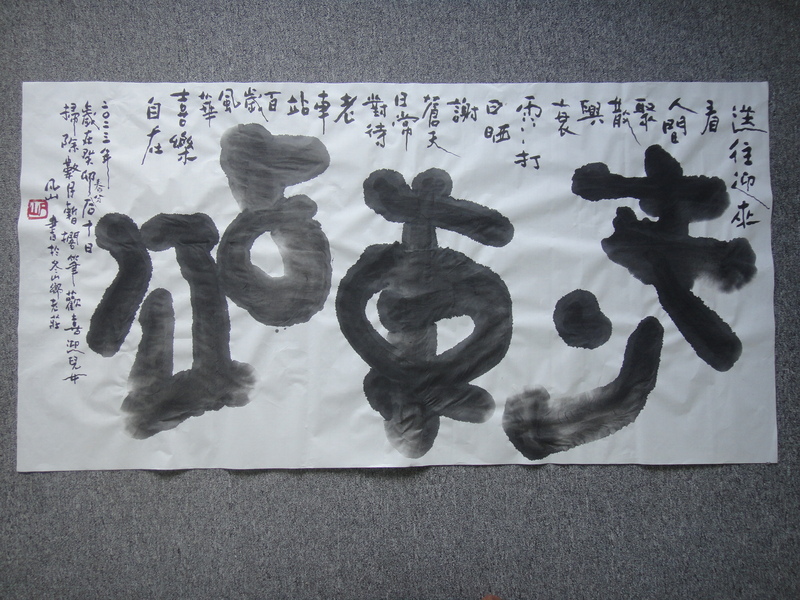 老車站
送往迎來
看
人間
聚
散
興
衰
雨打
日晒
謝
蒼天
日常
對待
老
車
站
百
歲
風
華
喜樂
自在
二〇二三年
歲在癸卯居十日
掃除數月暫擱筆歡喜迎兒女
凡山 書於冬山鄉老莊